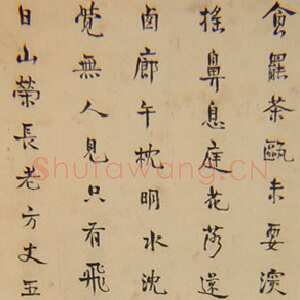 食罷茶甌未要深
搖鼻息庭花落還
鹵廊午枕明水沈
覺無人見只有飛
日山榮長老方丈五
Shufawang.CN